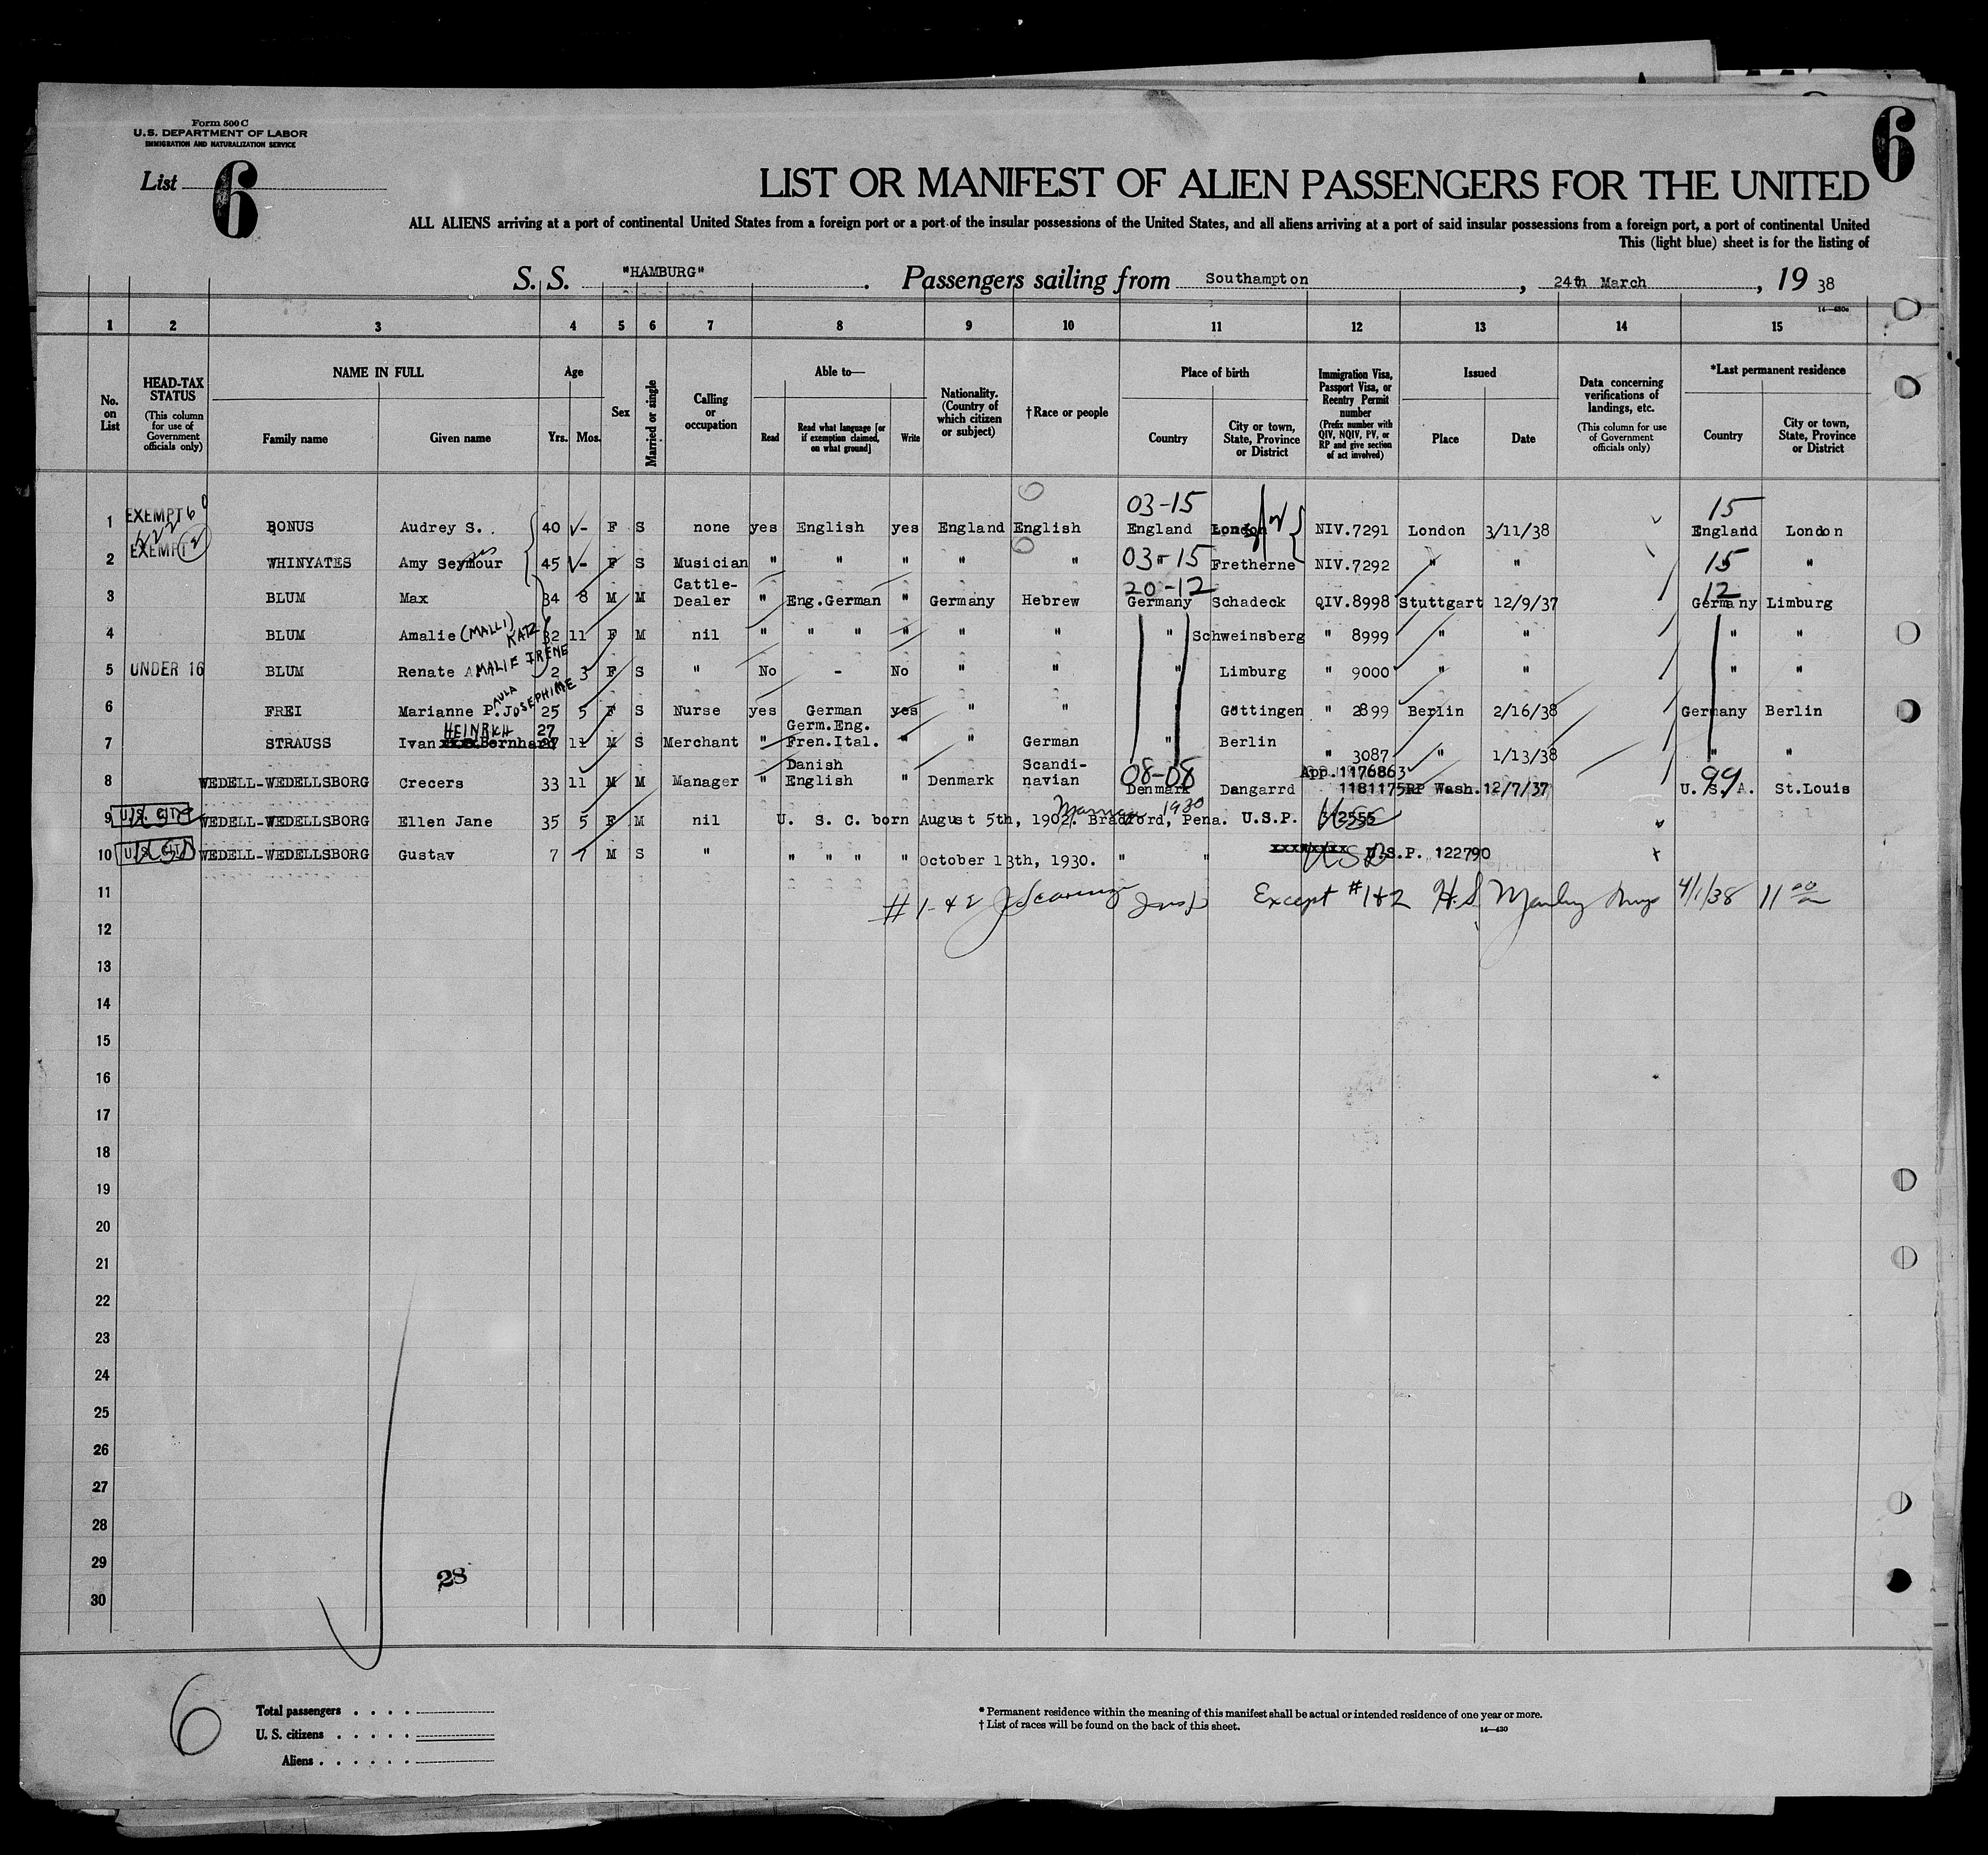 Form 500 C
U.S. DEPARTMENT OF LABOR
IMMIGRATION AND NATURALIZATION SERVICE
List 6
6
LIST OR MANIFEST OF ALIEN PASSENGERS FOR THE UNITED
ALL ALIENS arriving at a port of continental United States from a foreign port or a port of the insular possessions of the United States, and all aliens arriving at a port of said insular possessions from a foreign port, a port of continental United
This (light blue) sheet is for the listing of
S. S. "HAMBURG". Passengers sailing from Southampton, 24th March, 19 38
14—430c
1 2 3 4 5 6 7 8 9 10 11 12 13 14 15
No. on List
HEAD-TAX STATUS (This column for use of Government officials only)
NAME IN FULL Family name Given name
Age Yrs. Mos.
Sex
Married or single
Calling or occupation
Able to— Read Read what language [or if exemption claimed, on what ground] Write
Nationality. (Country of which citizen or subject)
†Race or people
Place of birth Country City or town, State, Province or District
Immigration Visa, Passport Visa, or Reentry Permit number (Prefix number with QIV, NQIV, PV, or RP and give section of act involved)
Issued Place Date
Data concerning verifications of landings, etc. (This column for use of Government officials only)
*Last permanent residence Country City or town, State, Province or District
03-15 15
1 EXEMPT BONUS Audrey S. 40 - F S none yes English yes England English England London NIV.7291 London 3/11/38 England London
2 EXEMPT WHINYATES Amy Seymour 45 - F S Musician " " " " " 03-15 Fretherne NIV.7292 " " 15 "
20-12 12
3 BLUM Max 34 8 M M Cattle-Dealer " Eng.German " Germany Hebrew Germany Schadeck QIV.8998 Stuttgart 12/9/37 Germany Limburg
4 BLUM Amalie (MALLI) KATZ 32 11 F M nil " " " " " " " Schweinsberg " 8999 " " " "
5 UNDER 16 BLUM Renate AMALIE IRENE 2 3 F S " No - No " " " Limburg " 9000 " " " "
6 FREI Marianne P. PAULA JOSEPHINE 25 5 F S Nurse yes German yes " " Göttingen " 2899 Berlin 2/16/38 Germany Berlin
7 STRAUSS Ivan HEINRICH Bernhard 27 11 M S Merchant " Germ.Eng. Fren.Ital. " " German " Berlin " 3087 " 1/13/38 " "
8 WEDELL-WEDELLSBORG Crecers 33 11 M M Manager " Danish English " Denmark Scandi-navian 08-08 Denmark Dangarrd App.1176863 1181175RP Wash. 12/7/37 99 U. S. A. St.Louis
9 U.S. CIT WEDELL-WEDELLSBORG Ellen Jane 35 5 F M nil U. S. C. born August 5th, 1902. Bradford, Pena. U.S.P. 1930
10 U.S. CIT WEDELL-WEDELLSBORG Gustav 7 7 M S " " " " " October 13th, 1930. " " U.S.P. 122790
11 # 1 & 2 Insp Except #1&2 H.S. Insp 4/1/38 11 00
12
13
14
15
16
17
18
19
20
21
22
23
24
25
26
27
28
29
30
28
6
Total passengers
U. S. citizens
Aliens
* Permanent residence within the meaning of this manifest shall be actual or intended residence of one year or more.
† List of races will be found on the back of this sheet.
14—430